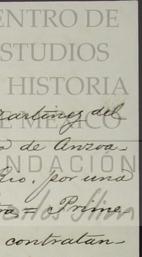 CENTRO DE
ESTUDIOS
HISTORIA
Martinez del
DE MÉXICO
de Anzoa-
FUNDACIÓN
cio, por una
Prime-
contratan-